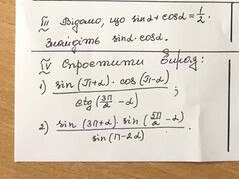 III Відомо, що sinα+cosα=1/2.
Знайдіть sinα·cosα.
IV Спростити вираз:
1) sin(π+α)·cos(π-α) / ctg(3π/2-α) ;
2) sin(3π+α)·sin(5π/2-α) / sin(π-2α)